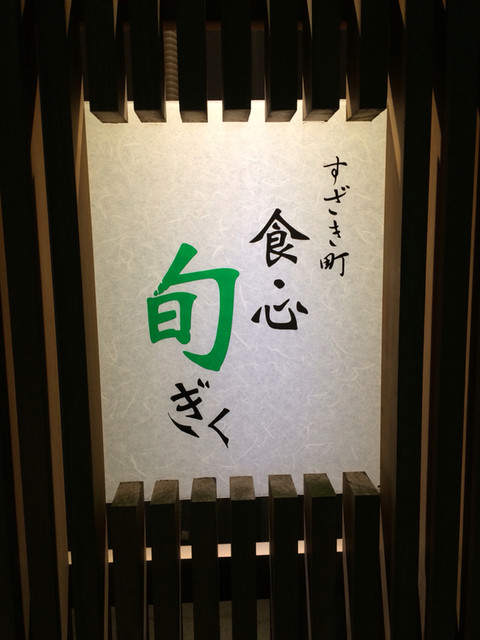 すざき町
食・心
旬ぎく